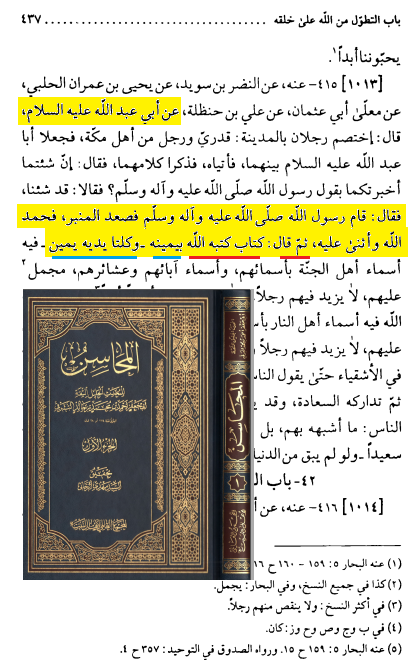 باب التطوّل من اللّه علىٰ خلقه ........................................ ٤٣٧
يحبّوننا أبداً١.
[١٠١٣] ٤١٥- عنه، عن النضر بن سويد، عن يحيى بن عمران الحلبي،
عن معلّىٰ أبي عثمان، عن علي بن حنظلة، عن أبي عبد اللّه عليه السلام،
قال: إختصم رجلان بالمدينة: قدريّ ورجل من أهل مكّة، فجعلا أبا
عبد اللّه عليه السلام بينهما، فأتياه، فذكرا كلامهما، فقال: إنّ شئتما
أخبرتكما بقول رسول اللّه صلّى اللّه عليه وآله وسلّم؟ فقالا: قد شئنا،
فقال: قام رسول اللّه صلّى اللّه عليه وآله وسلّم فصعد المنبر، فحمد
اللّه وأثنىٰ عليه، ثمّ قال: كتاب كتبه اللّه بيمينه ـ وكلتا يديه يمين ـ فيه
أسماء أهل الجنّة بأسمائهم، وأسماء آبائهم وعشائرهم، مجمل٢
عليهم، لا يزيد فيهم رجلاً
اللّه فيه أسماء أهل النار بأس
عليهم، لا يزيد فيهم رجلاً
في الأشقياء حتّىٰ يقول الناس
ثمّ تداركه السعادة، وقد ي
الناس: ما أشبهه بهم، بل
سعيداً ـ ولو لم يبق من الدنيا
٤٢- باب ال
[١٠١٤] ٤١٦- عنه، عن أ
المحاسن
الجزء الأول
تحقيق
المحاسن
(١) عنه البحار ٥: ١٥٩ - ١٦٠ ح ١٦
(٢) كذا في جميع النسخ، وفي البحار: يجمل.
(٣) في أكثر النسخ: ولا ينقص منهم رجلاً.
(٤) في ب وج وص وح وز: كان.
(٥) عنه البحار ٥: ١٥٩ ح ١٥. ورواه الصدوق في التوحيد: ٣٥٧ ح ٤.